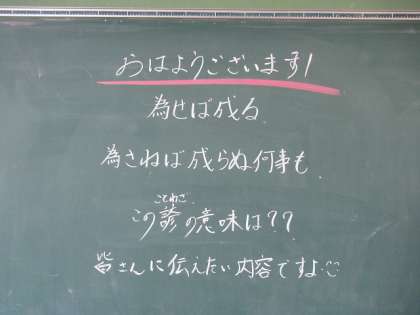 おはようございます!
為せば成る
為さねば成らぬ何事も
ことわざ
この諺の意味は??
皆さんに伝えたい内容ですよ